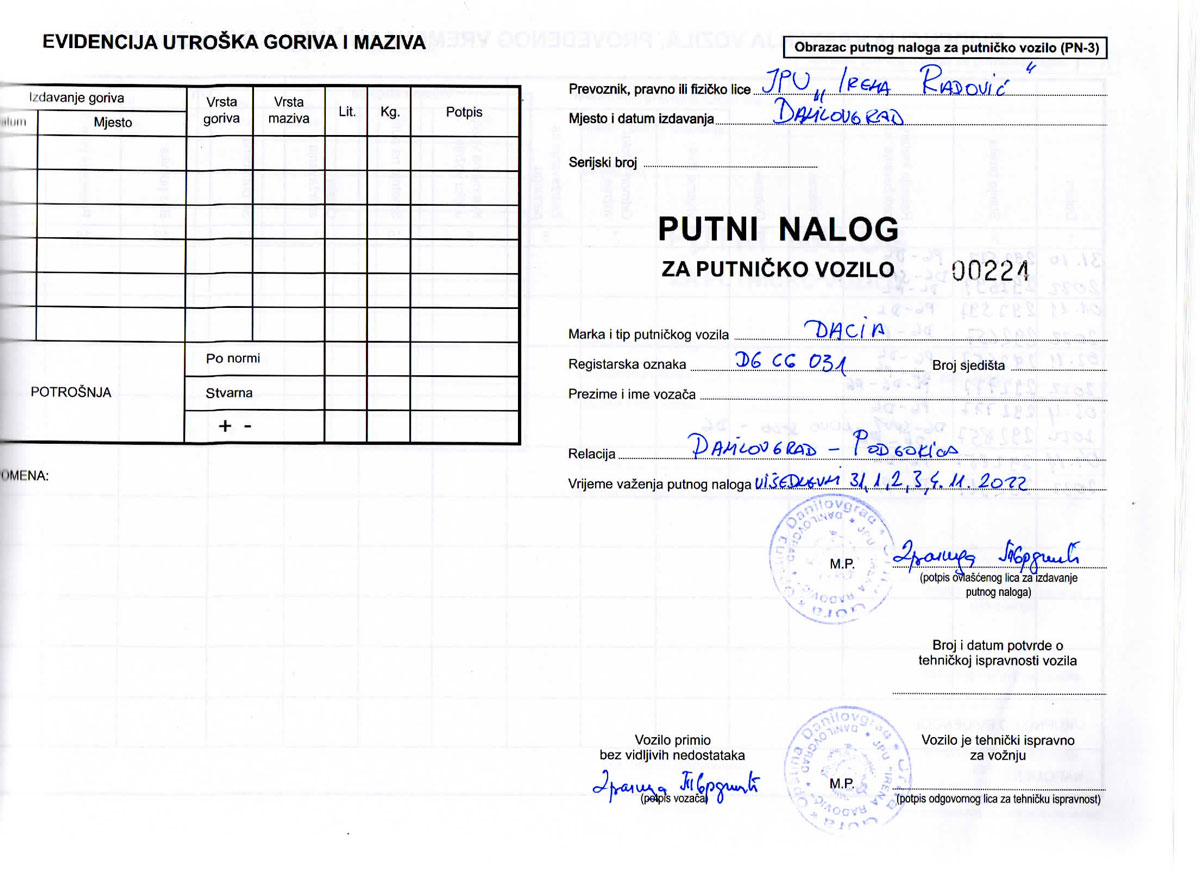 EVIDENCIJA UTROŠKA GORIVA I MAZIVA
Izdavanje goriva
Mjesto
Vrsta goriva
Vrsta maziva
Lit.
Kg.
Potpis
POTROŠNJA
Po normi
Stvarna
+ -
OMENA:
Obrazac putnog naloga za putničko vozilo (PN-3)
Prevoznik, pravno ili fizičko lice JPU „Irena Radović“
Mjesto i datum izdavanja Danilovgrad
Serijski broj
PUTNI NALOG
ZA PUTNIČKO VOZILO 00224
Marka i tip putničkog vozila DACIA
Registarska oznaka DG CG 031 Broj sjedišta
Prezime i ime vozača
Relacija Danilovgrad – Podgorica
Vrijeme važenja putnog naloga višednevni 31, 1, 2, 3, 4. 11. 2022
M.P.
(potpis ovlašćenog lica za izdavanje
putnog naloga)
Broj i datum potvrde o
tehničkoj ispravnosti vozila
Vozilo primio
bez vidljivih nedostataka
(potpis vozača)
M.P.
Vozilo je tehnički ispravno
za vožnju
(potpis odgovornog lica za tehničku ispravnost)